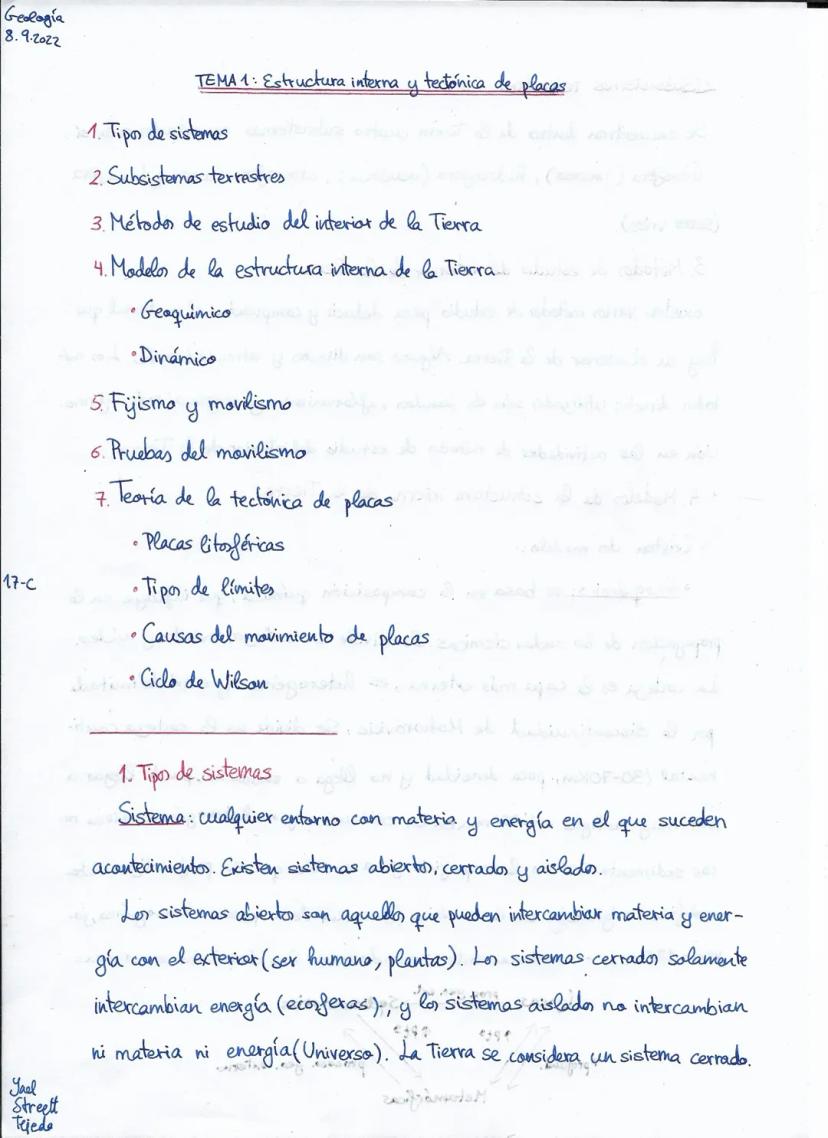 Geología
8.9.2022
TEMA 1: Estructura interna y tectónica de placas
1. Tipos de sistemas
2. Subsistemas terrestres
3. Métodos de estudio del interior de la Tierra
4. Modelos de la estructura interna de la Tierra
• Geoquímico
• Dinámico
5. Fijismo y movilismo
6. Pruebas del movilismo
7. Teoría de la tectónica de placas
• Placas litosféricas
• Tipos de límites
17-C
• Causas del movimiento de placas
• Ciclo de Wilson
1. Tipos de sistemas
Sistema: cualquier entorno con materia y energía en el que suceden
acontecimientos. Existen sistemas abiertos, cerrados y aislados.
Los sistemas abiertos son aquellos que pueden intercambiar materia y ener-
gía con el exterior (ser humano, plantas). Los sistemas cerrados solamente
intercambian energía (ecosferas), y los sistemas aislados no intercambian
ni materia ni energía (Universo). La Tierra se considera un sistema cerrado.
Yael
Streett
Tejeda